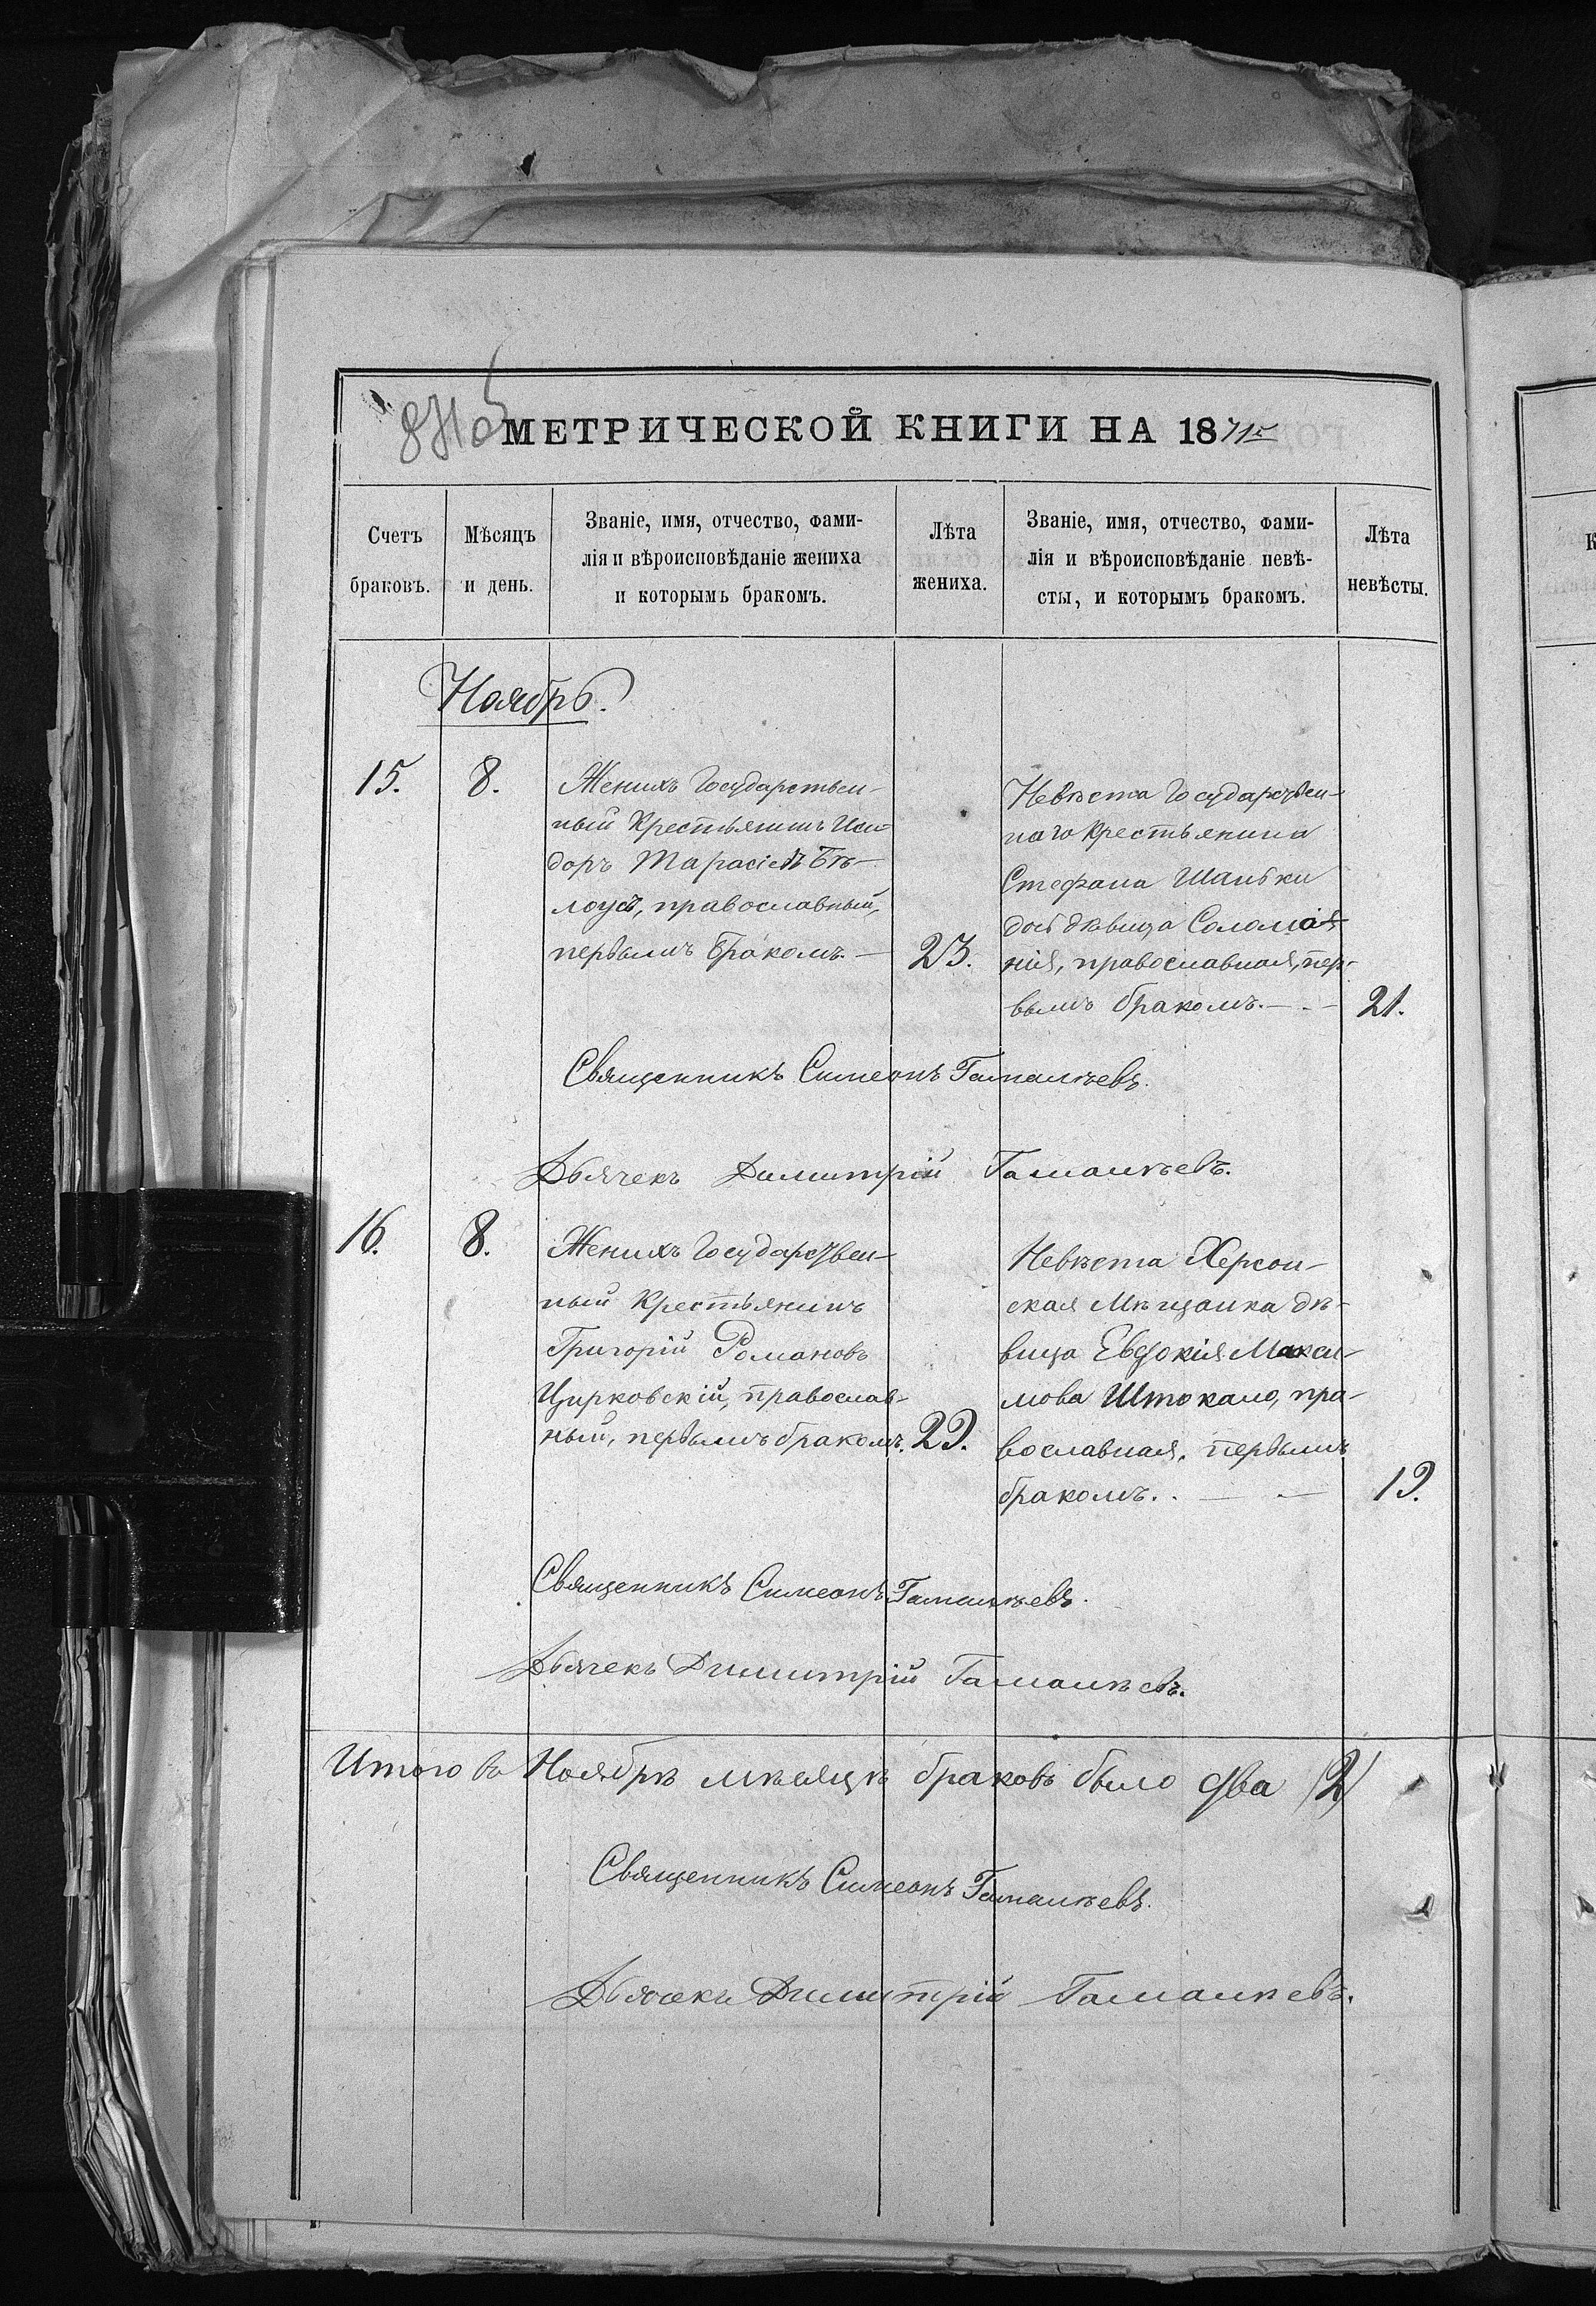 МЕТРИЧЕСКОЙ КНИГИ НА 1871й
Счетъ браковъ.
Мѣсяцъ и день.
Званіе, имя, отчество, фами-
лія и вѣроисповѣданіе жениха
и которымъ бракомъ.
Лѣта жениха.
Званіе, имя, отчество, фами-
лія и вѣроисповѣданіе невѣ-
сты, и которымъ бракомъ.
Лѣта невѣсты.
Ноябрь.
15.
8.
Женихъ Государствен-
ный Крестьянинъ Иси-
доръ Тарасіевъ Бѣ-
лоусъ, православный,
первымъ бракомъ.—
23.
Невѣста Государствен-
наго крестьянина
Стефана
дочь дѣвица Соломо-
нія, православная, пер-
вымъ бракомъ.—.—
21.
Священникъ Симеонъ Гамалѣевъ.
Дьячекъ Димитрій Гамалѣевъ.
16.
8.
Женихъ Государствен-
ный Крестьянинъ
Григорій Романовъ
Цирковскій, православ-
ный, первымъ бракомъ.
29.
Невѣста Херсон-
ская Мѣщанка дѣ-
вица Евдокія Макси-
мова Штокало, пра-
вославная, первымъ
бракомъ. . — —
19.
Священникъ Симеонъ Гамалѣевъ.
Дьячекъ Димитрій Гамалѣевъ.
Итого въ Ноябрѣ мѣсяцѣ браковъ было два (2)
Священникъ Симеонъ Гамалѣевъ.
Дьячекъ Димитрій Гамалѣевъ.